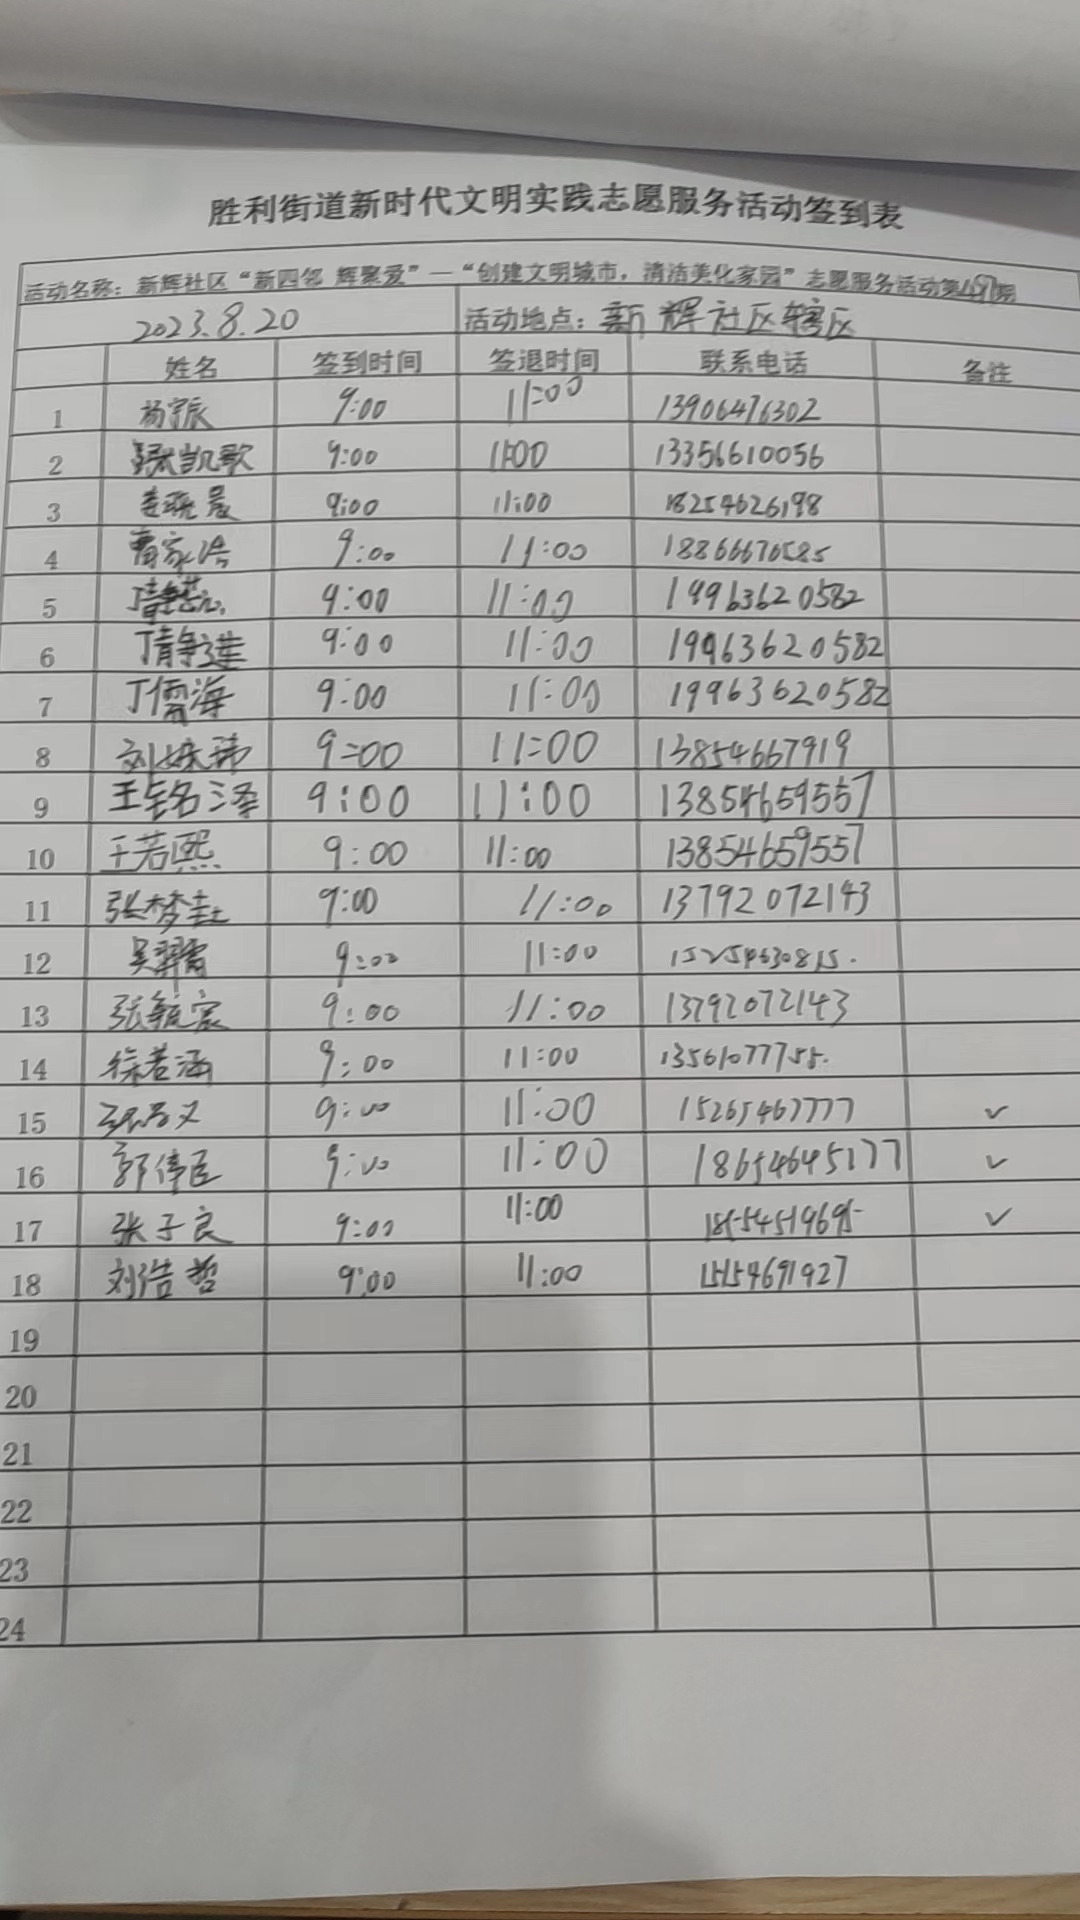 胜利街道新时代文明实践志愿服务活动签到表
活动名称：新辉社区“新四邻 辉聚爱”—“创建文明城市，清洁美化家园”志愿服务活动第 期
2023.8.20 活动地点：新辉社区辖区
姓名 签到时间 签退时间 联系电话 备注
1 杨宇辰 9:00 11:00 13906476302
2 张凯歌 9:00 11:00 13356610056
3 9:00 11:00 18254626198
4 曹家浩 9:00 11:00 18866670585
5 9:00 11:00 19963620582
6 丁静莲 9:00 11:00 19963620582
7 丁儒海 9:00 11:00 19963620582
8 9:00 11:00 13854667919
9 王铭泽 9:00 11:00 13854659557
10 王若熙 9:00 11:00 13854659557
11 张梦 9:00 11:00 13792072143
12 吴羿霄 9:00 11:00
13 张毓宸 9:00 11:00 13792072143
14 徐若涵 9:00 11:00 13561077755.
15 9:00 11:00 15265467777 ✓
16 郭倩臣 9:00 11:00 18654645177 ✓
17 张子良 9:00 11:00 ✓
18 刘浩哲 9:00 11:00 15154691927
19
20
21
22
23
24